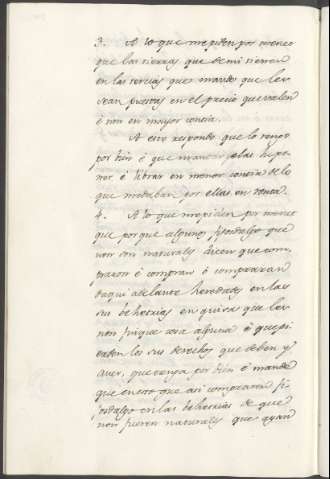 3. A lo que me piden por merced
que las tierras que de mi tienen
en las tercias que mande que les
sean puestas en el precio que valen
é non en mayor contia.
A esto respondo que lo tengo
por bien é que mandar gelas he po-
ner é librar en menor contia de lo
que montaban por ellas en renta.
4. A lo que me piden por merced
que porque algunos fijosdalgo que
non son naturales dicen que com-
praron é compran é compraran
daqui adelante heredades en las
sus behetrias en guisa que les
non finque cosa alguna é que pi-
erden los sus derechos que deben y
aver, que tenga por bien é mande
que en esto que asi compraren fi-
josdalgo en las behetrias de que
non fueren naturales que ayan